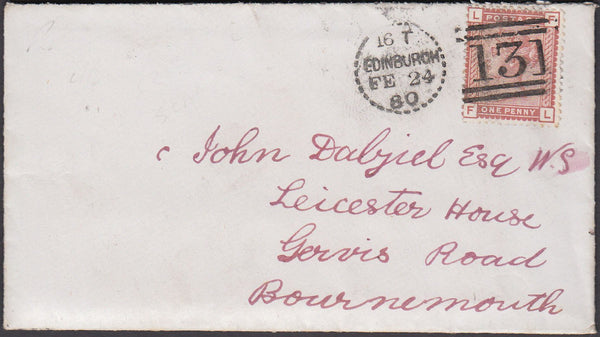 16 T
EDINBURGH
FE 24
80
L POSTAGE F
131
F ONE PENNY L
John Dalziel Esq W.S
Leicester House
Gervis Road
Bournemouth